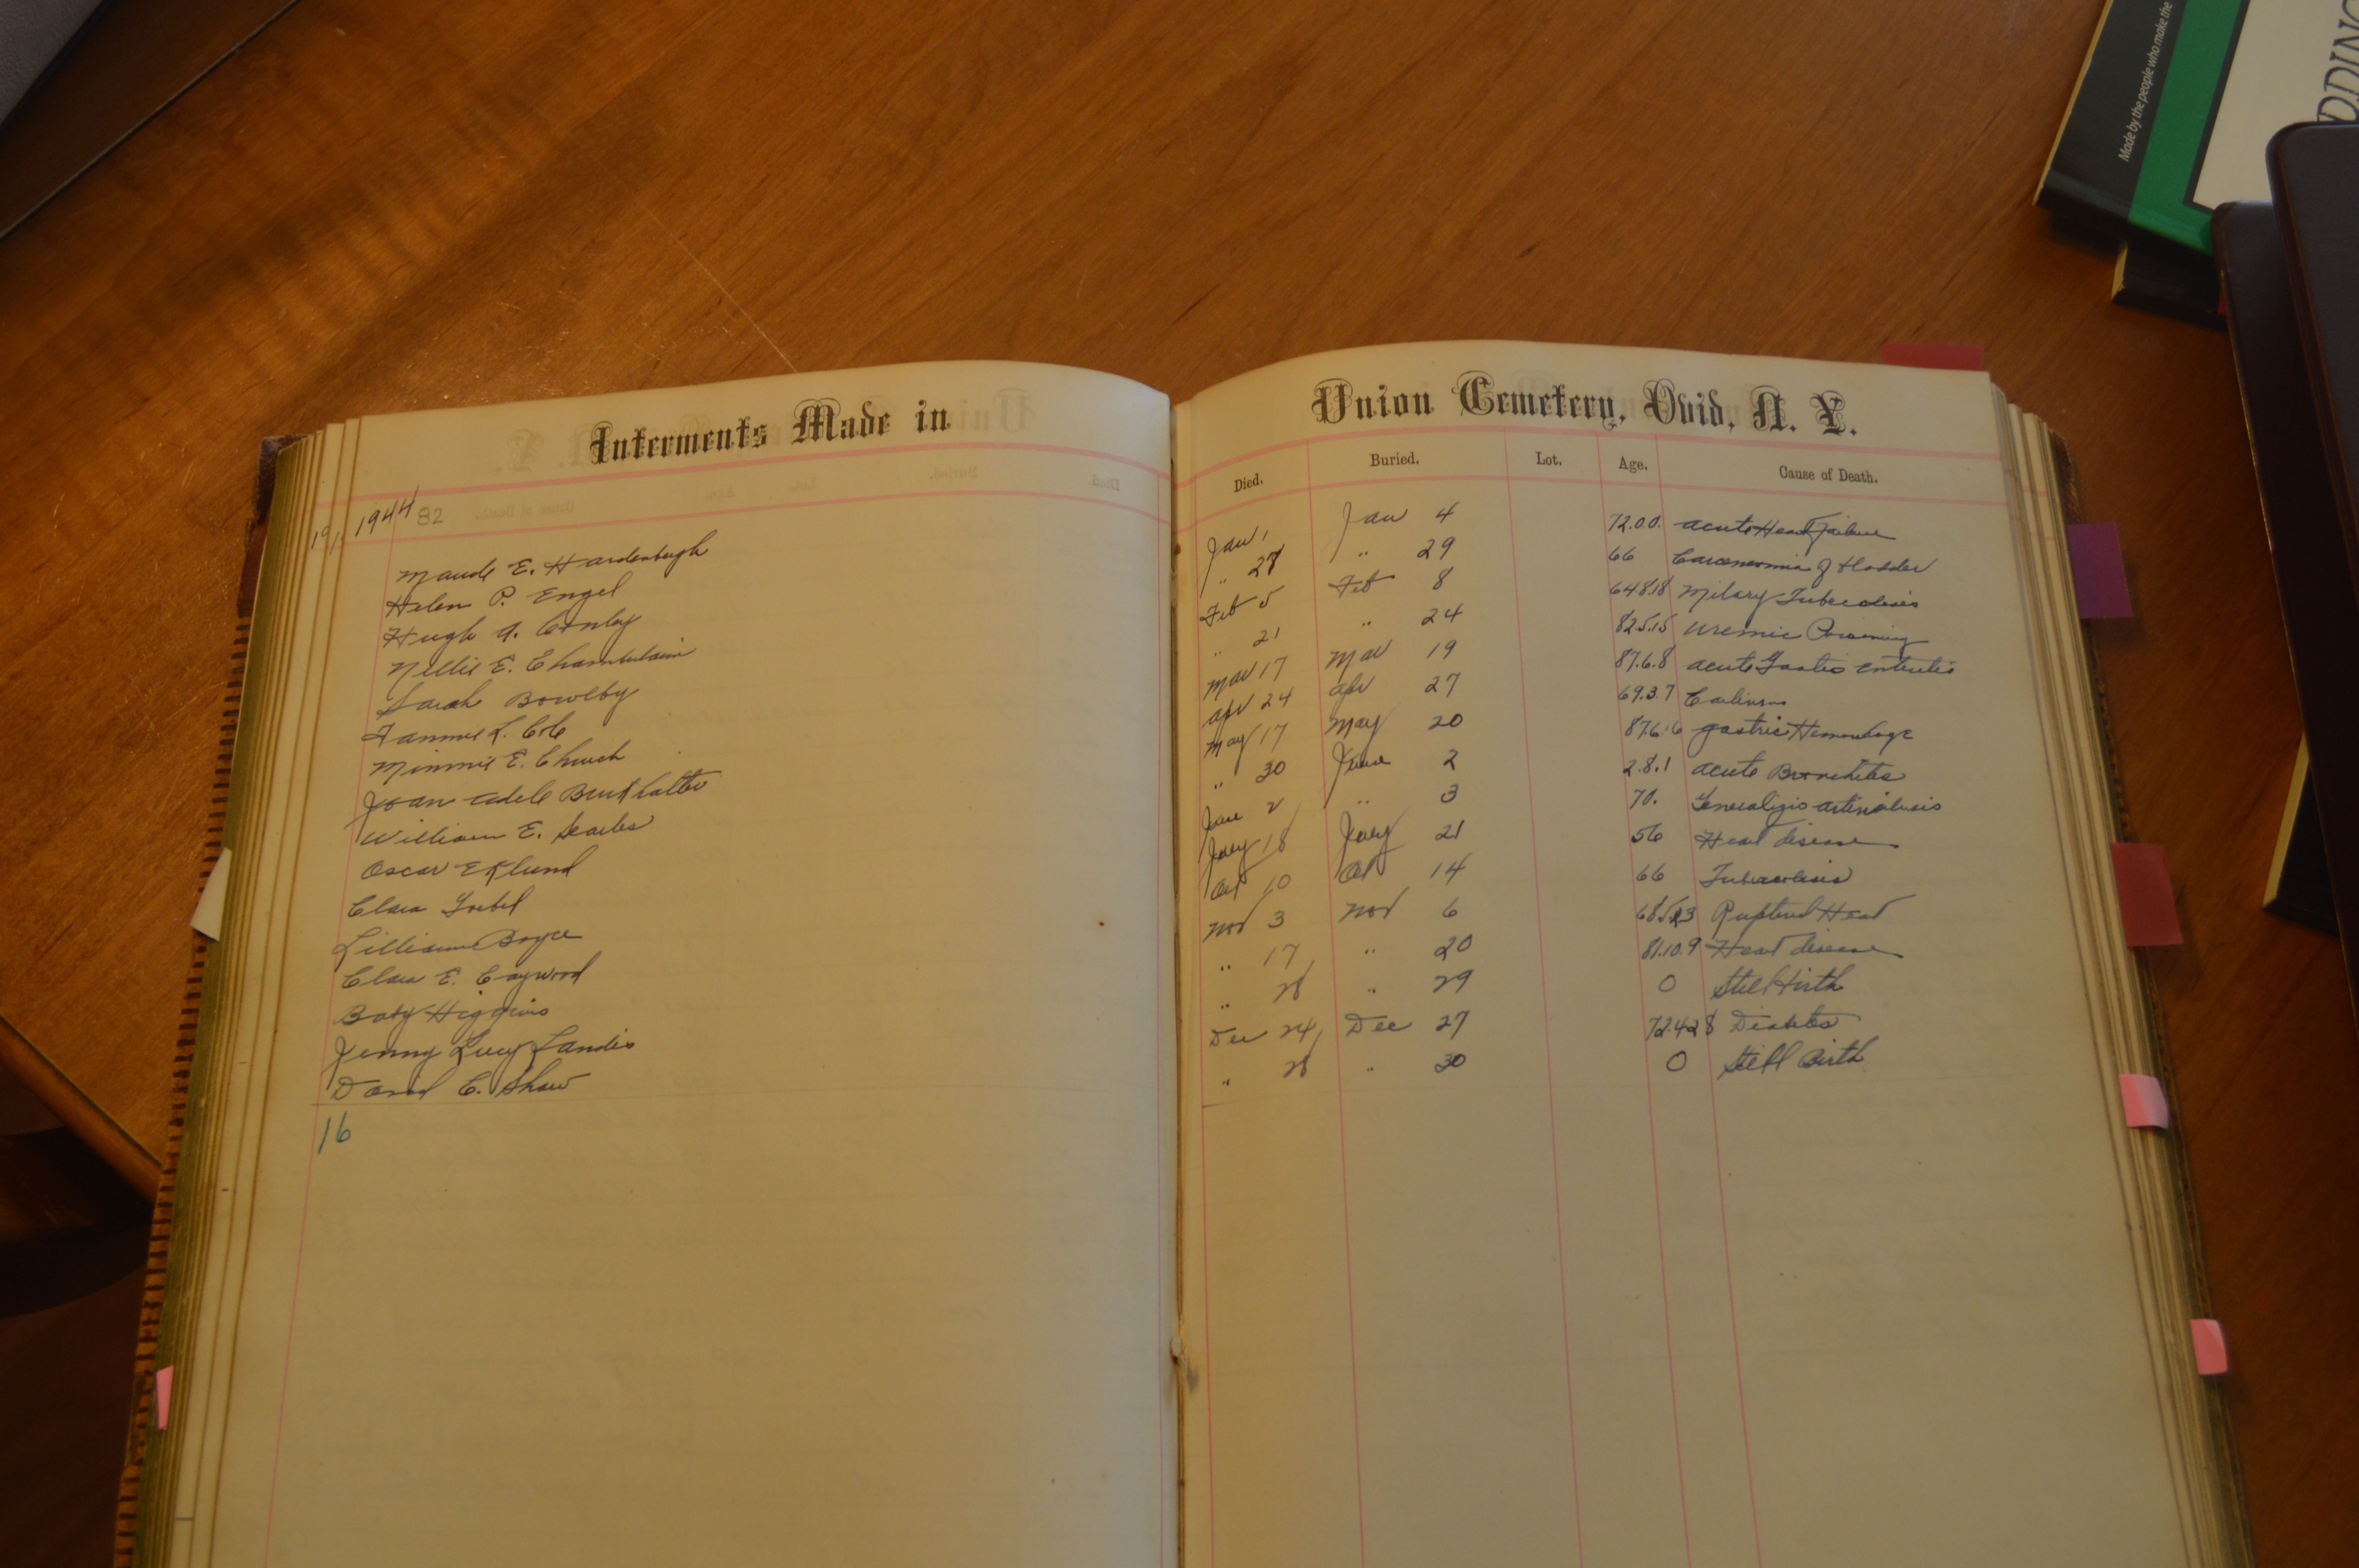 Made by the people who make the
DDING
Interments Made in Union Cemetery, Ovid, N. Y.
Died. Buried. Lot. Age. Cause of Death.
191 1944 82
Maude E. Hardenbugh Jan 1 Jan 4 72.0.0. acute Heart Failure
Helen P. Engel " 27 " 29 66 Carcenomia of bladder
Hugh A. Conley Feb 5 Feb 8 64 8 18 Milary Tuberculosis
Nellie E. Chamberlain " 21 " 24 82.5.15 uremic Poisoning
Sarah Bowlby Mar 17 Mar 19 87.6.8 acute Gastro enteritis
Fannie L. Cole apr 24 apr 27 69.3.7
Minnie E. Church May 17 May 20 87.6.16 gastric Hemorhage
Joan Adele Burkhalter " 30 June 2 2.8.1 acute Bronchites
William E. Searles June 2 " 3 70.
Oscar Eklund July 18 July 21 56 Heart disease
Clara Goebel Oct 10 Oct 14 66 Tuberculosis
Lilliann Boyce Nov 3 Nov 6 Ruptured Heart
Clara E. Caywood " 17 " 20 81.10.9 Heart disease
Baby Higgins " 28 " 29 0 Still birth
Jenny Lucy Landis Dec 24 Dec 27 72.4.28 Diabetes
David C. Shaw " 28 " 30 0 Still Birth
16